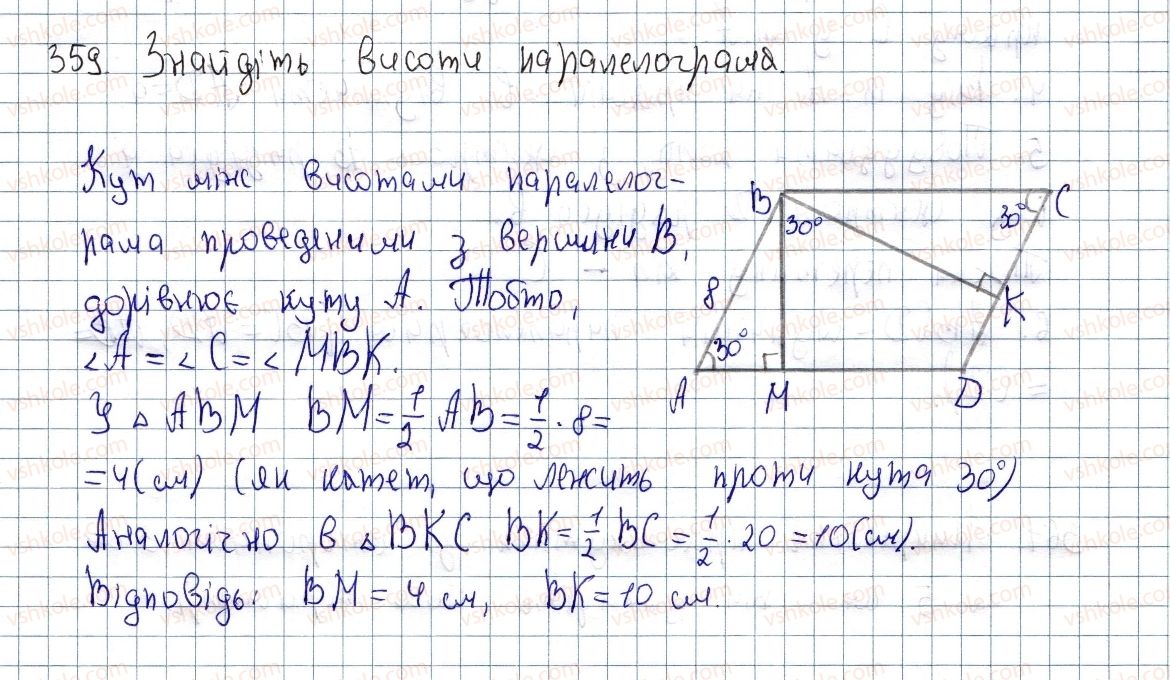 359. Знайдіть висоти паралелограма.
Кут між висотами паралелог-
рама проведеними з вершини В,
дорівнює куту А. Тобто,
∠A = ∠C = ∠MBK.
У △ ABM BM = 1/2 AB = 1/2 · 8 =
= 4 (см) (як катет, що лежить проти кута 30°)
Аналогічно в △ BKC BK = 1/2 BC = 1/2 · 20 = 10 (см).
Відповідь: BM = 4 см, BK = 10 см.
B
C
30°
30°
8
K
30°
A
M
D
vshkole.com